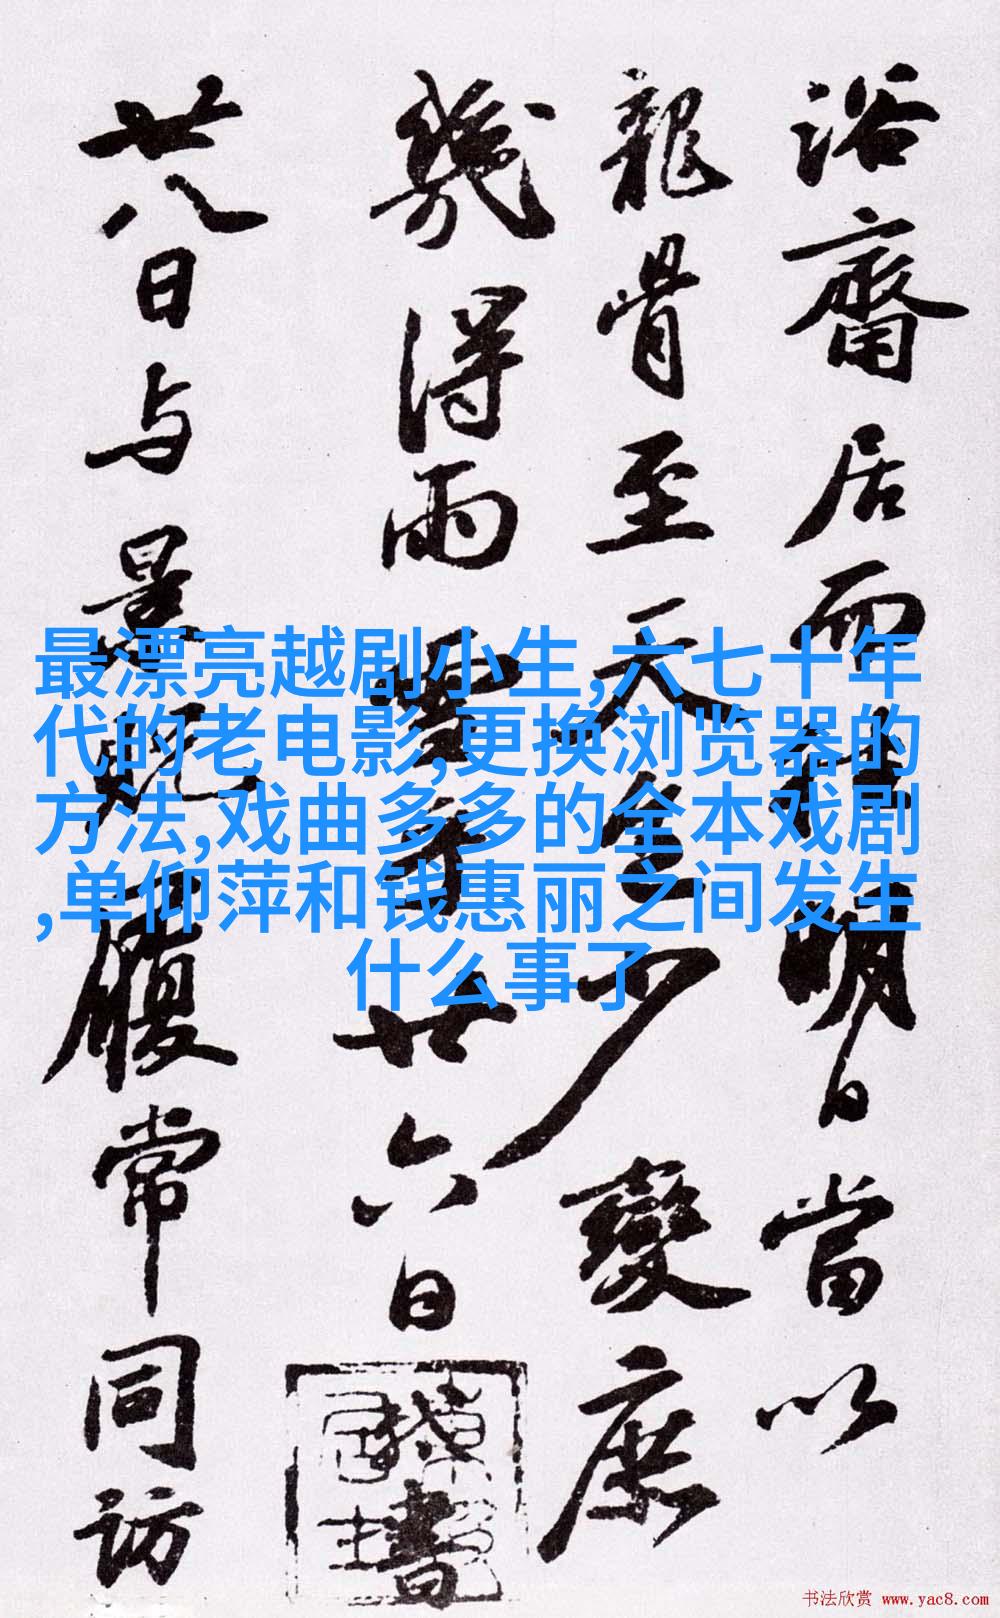 浴齋居而禱明日當以
龍骨至天色少變庶
幾得雨
廿六日
書
廿八日与景
腹常同访
最漂亮越剧小生,六七十年
代的老电影,更换浏览器的
方法,戏曲多多的全本戏剧
,单仰萍和钱惠丽之间发生
什么事了
书法欣赏 www.yac8.com